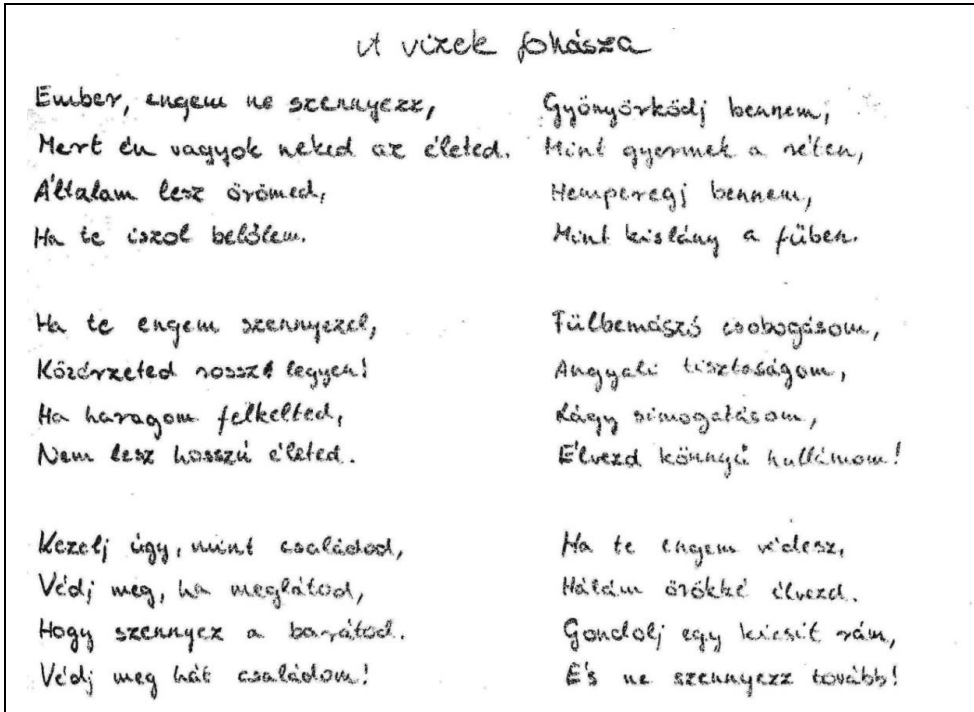 A vizek fohásza
Ember, engem ne szennyezz,
Mert én vagyok neked az életed.
Általam lesz örömed,
Ha te iszol belőlem.
Ha te engem szennyezel,
Közérzeted rosszá legyen!
Ha haragom felkelted,
Nem lesz hosszú életed.
Kezelj úgy, mint családod,
Védj meg, ha meglátod,
Hogy szennyez a barátod.
Védj meg hát családom!
Gyönyörködj bennem,
Mint gyermek a réten,
Hemperegj bennem,
Mint kislány a fűben.
Fülbemászó csobogásom,
Angyali tisztaságom,
Lágy simogatásom,
Élvezd könnyű hullámom!
Ha te engem védesz,
Hálám örökké élvezd.
Gondolj egy kicsit rám,
És ne szennyezz tovább!